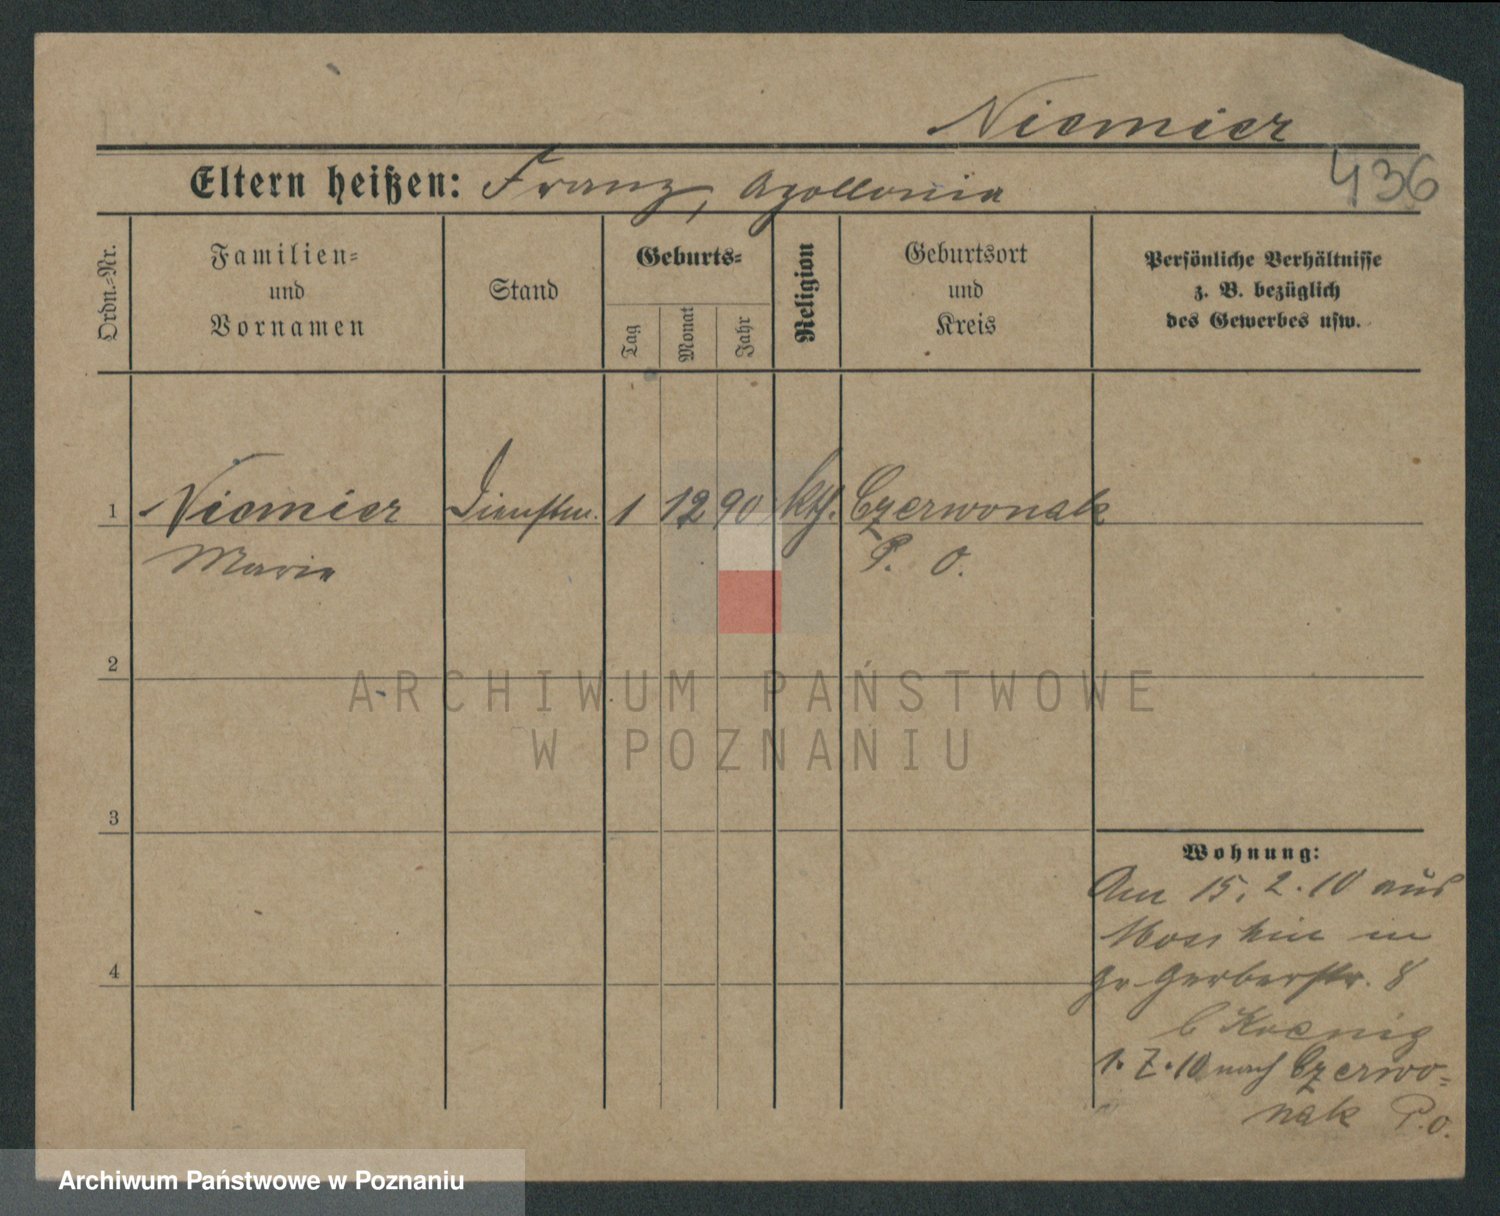 Niemier
436
Eltern heißen: Franz, Apollonia
Ordn.-Nr.
Familien- und Vornamen
Stand
Geburts-
Tag
Monat
Jahr
Religion
Geburtsort und Kreis
Persönliche Verhältnisse
z. B. bezüglich
des Gewerbes usw.
1 Niemier Dienstm. 1 12 90 kth. Czerwonak
Marie P. O.
2
ARCHIWUM PAŃSTWOWE
W POZNANIU
3
Wohnung:
Am 15. 2. 10 aus
Moschin in
4
Gr. Gerberstr. 8
b Koenig
1. 7. 10 nach Czerwo-
nak P. O.
Archiwum Państwowe w Poznaniu